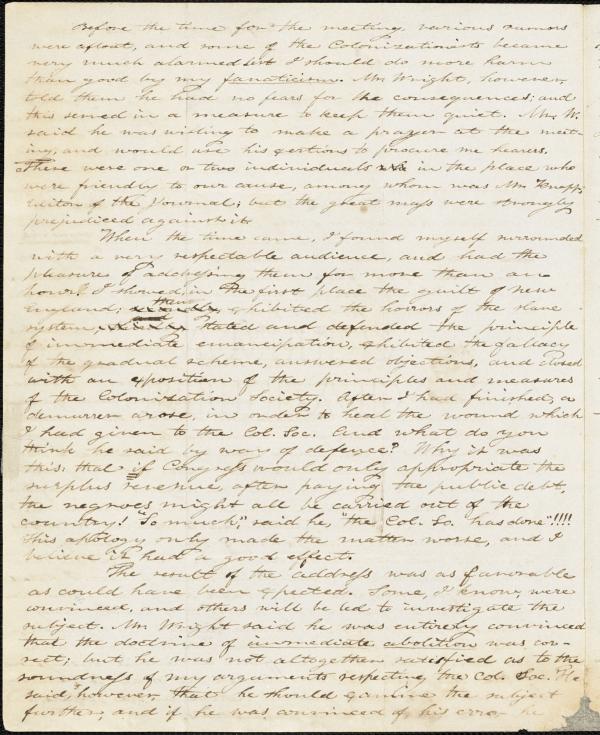 Before the time for the meeting, various rumors
were afloat, and some of the Colonizationists became
very much alarmed lest I should do more harm
than good by my fanaticism. Mr. Wright, however,
told them he had no fears for the consequences; and
this served in a measure to keep them quiet. Mr. W.
said he was willing to make a prayer at the meet-
ing, and would use his exertions to procure me hearers.
There were one or two individuals in the place who
were friendly to our cause, among whom was Mr. Knapp,
Editor of the Journal; but the great mass were strongly
prejudiced against it.
When the time came, I found myself surrounded
with a very respectable audience, and had the
pleasure of addressing them for more than an
hour. I showed, in the first place the guilt of New
England; then exhibited the horrors of the slave
system, stated and defended the principle
of immediate emancipation, exhibited the fallacy
of the gradual scheme, answered objections, and closed
with an exposition of the principles and measures
of the Colonization Society. After I had finished, a
demurrer arose, in order to heal the wound which
I had given to the Col. Soc. And what do you
think he said by way of defence? Why it was
this. that if Congress would only appropriate the
surplus revenue, after paying the public debt,
the negroes might all be carried out of the
country! "So much," said he, "the Col. So. has done"!!!!
This apology only made the matter worse, and I
believe it had a good effect.
The result of the address was as favorable
as could have been expected. Some, I know, were
convinced, and others will be led to investigate the
subject. Mr. Wright said he was entirely convinced
that the doctrine of immediate abolition was cor-
rect; but he was not altogether satisfied as to the
soundness of my arguments respecting the Col. Soc. He
said, however, that he should examine the subject
further, and if he was convinced of his error he